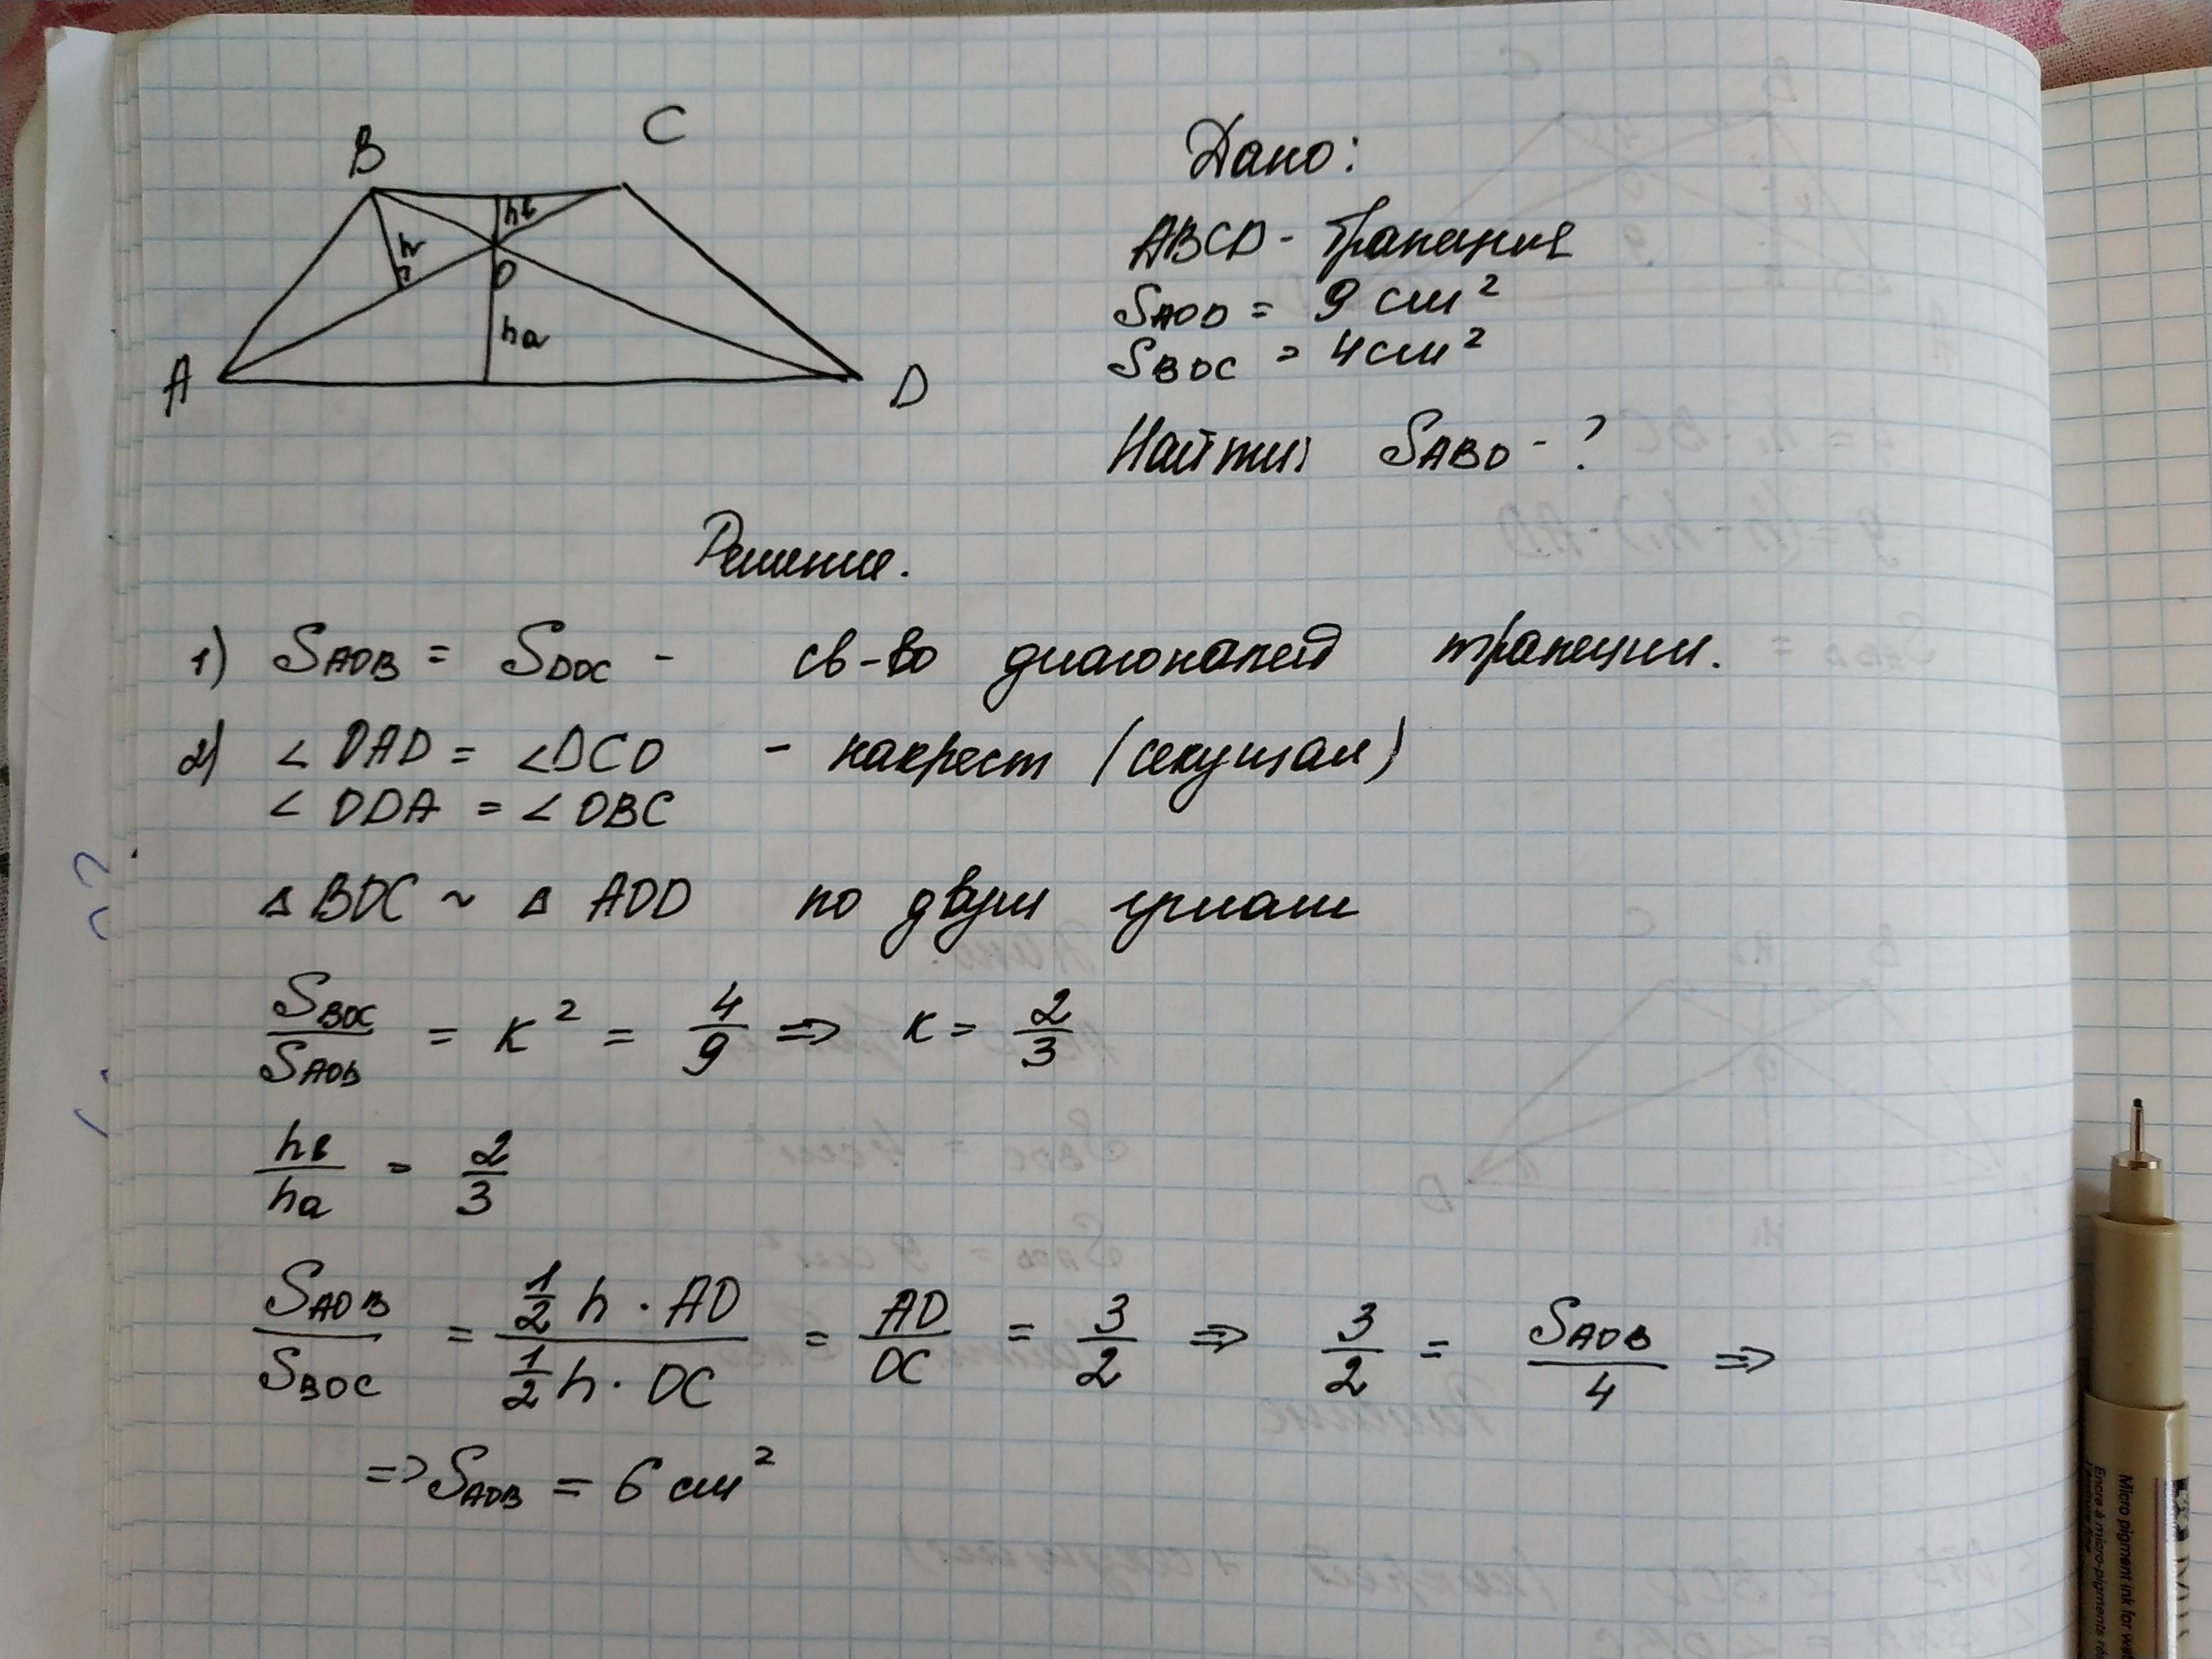 B C
hв
h
O
hа
A D
Дано:
ABCD - Трапеция
SAOD = 9 см²
SBOC = 4 см²
Найти: SABO - ?
Решение.
1) SAOB = SDOC - св-во диагоналей трапеции.
2) ∠OAD = ∠OCB - накрест (секущая)
∠ODA = ∠OBC
△BOC ~ △AOD по двум углам
SBOC/SAOD = K² = 4/9 => K = 2/3
hв/hа = 2/3
SAOB/SBOC = (1/2 h · AO)/(1/2 h · OC) = AO/OC = 3/2 => 3/2 = SAOB/4 =>
=> SAOB = 6 см²
Micro pigment ink for
Encre à micro-pigments